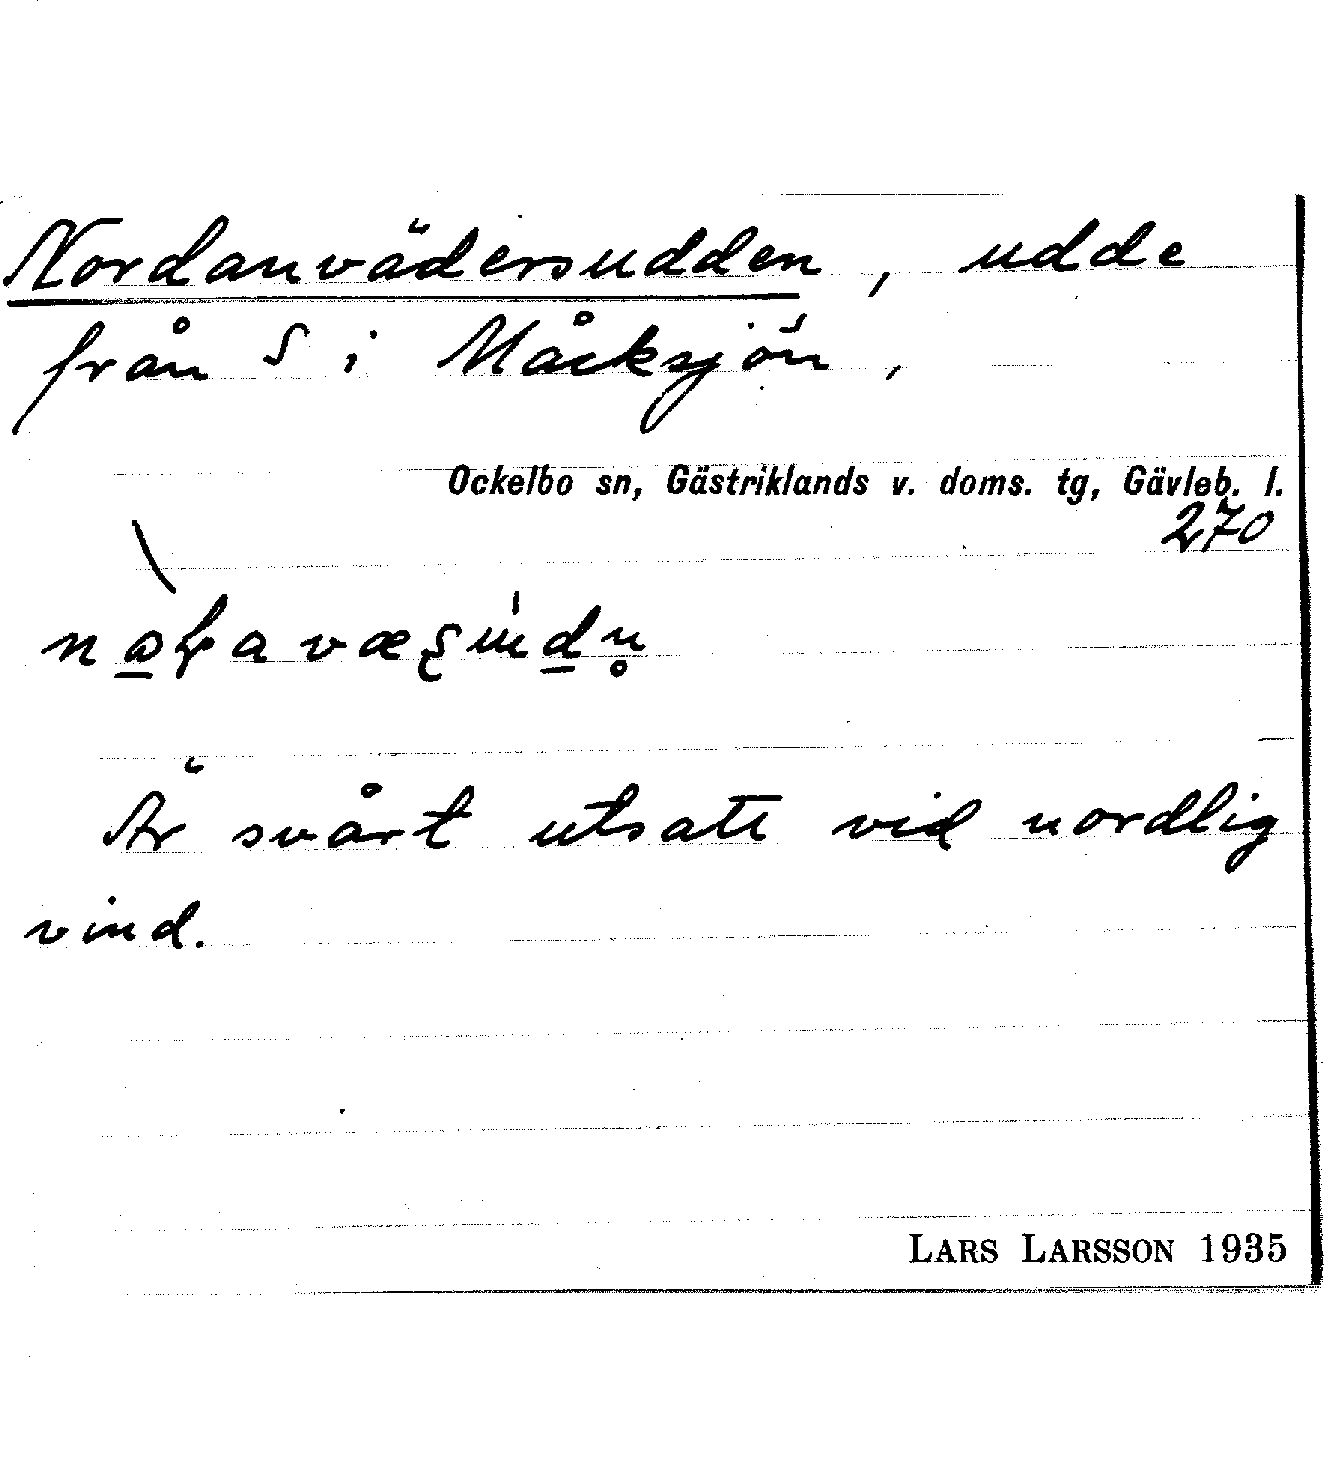 Nordanvädersudden, udde
från S i Måcksjön,
Ockelbo sn, Gästriklands v. doms. tg, Gävleb. l.
270
Är svårt utsatt vid nordlig
vind.
LARS LARSSON 1935